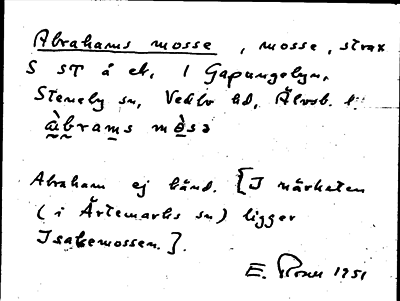 Abrahams mosse, mosse, strax
S ST å ek. 1 Gapungebyn,
Steneby sn, Vedbo hd, Älvsb. l.
àbrams mòsə
Abraham ej känd. [I närheten
(i Ärtemarks sn) ligger
Isaksmossen.].
E. Rosen 1951